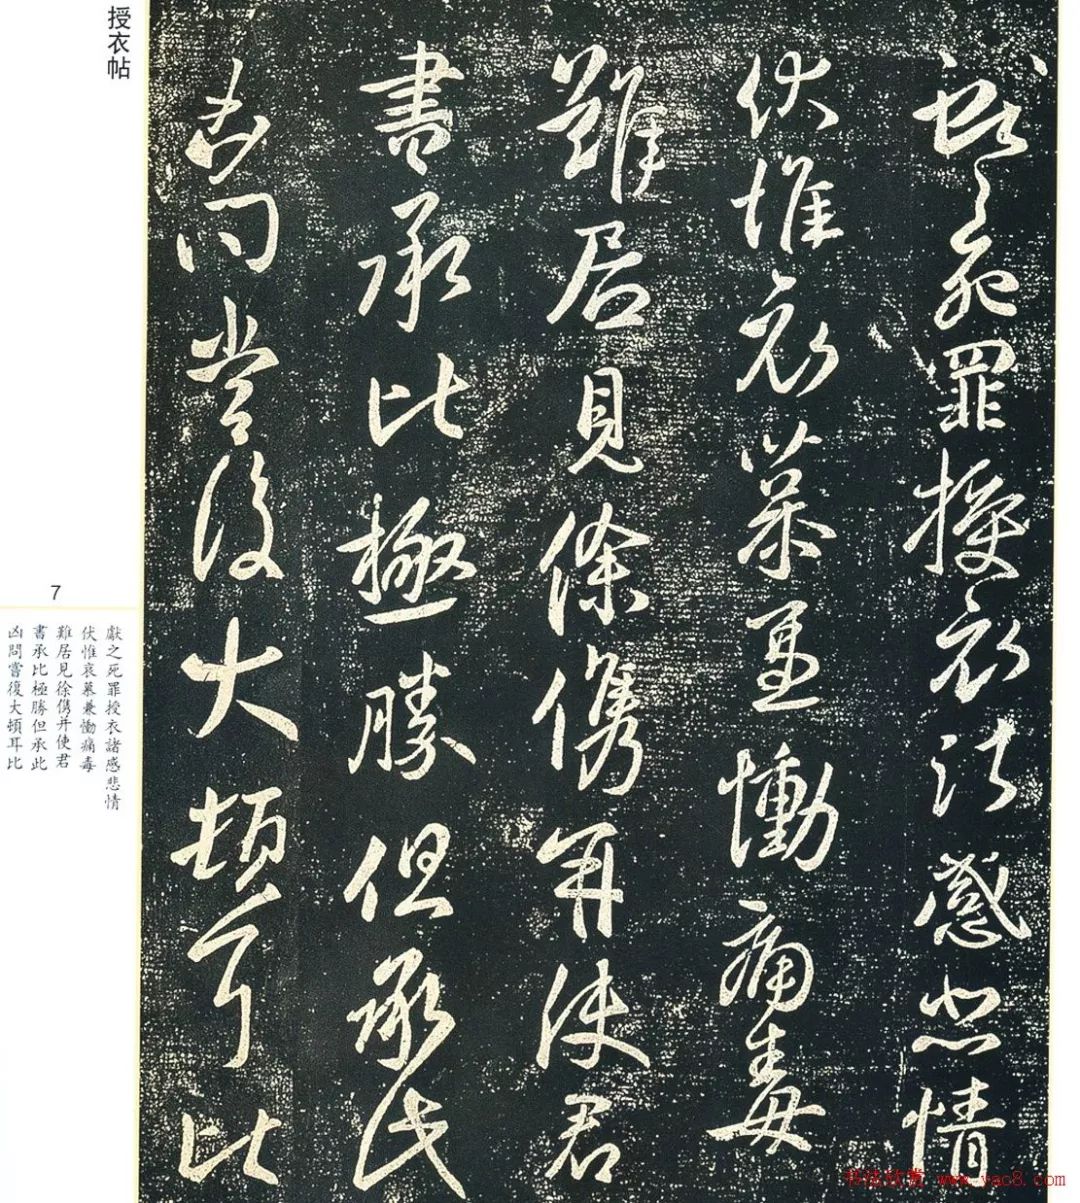 獻之死罪授衣諸感悲情
伏惟哀慕兼慟痛毒
難居見徐儁并使君
書承比極勝但承此
凶問嘗復大頓耳比
授衣帖
7
獻之死罪授衣諸感悲情
伏惟哀慕兼慟痛毒
難居見徐儁并使君
書承比極勝但承此
凶問嘗復大頓耳比
书法欣赏 www.yac8.com